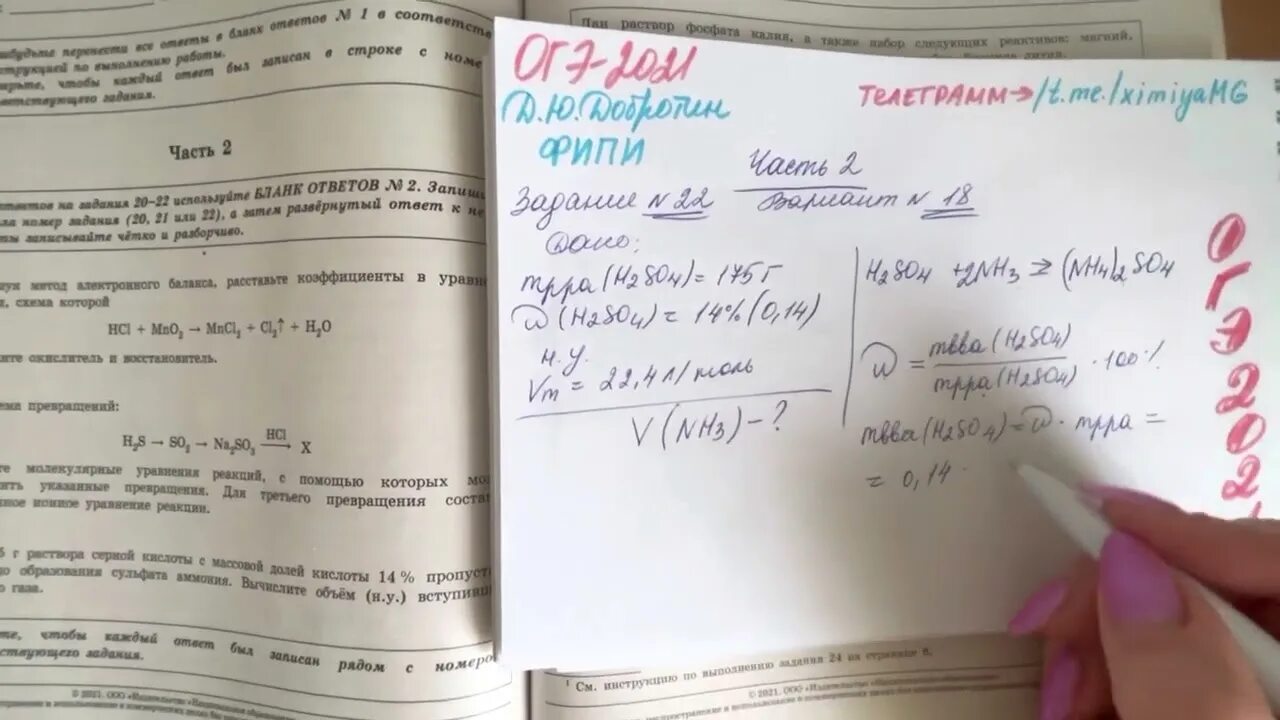 забудьте перенести все ответы в бланк ответов № 1 в соответств
струкцией по выполнению работы.
ерьте, чтобы каждый ответ был записан в строке с номе
ветствующего задания.
Часть 2
ответов на задания 20–22 используйте БЛАНК ОТВЕТОВ № 2. Запиши
ла номер задания (20, 21 или 22), а затем развёрнутый ответ к не
ты записывайте чётко и разборчиво.
зуя метод электронного баланса, расставьте коэффициенты в уравне
и, схема которой
HCl + MnO₂ → MnCl₂ + Cl₂↑ + H₂O
ите окислитель и восстановитель.
ема превращений:
H₂S → SO₂ → Na₂SO₃ HCl→ X
те молекулярные уравнения реакций, с помощью которых мо
ить указанные превращения. Для третьего превращения состав
ное ионное уравнение реакции.
5 г раствора серной кислоты с массовой долей кислоты 14 % пропуст
до образования сульфата аммония. Вычислите объём (н.у.) вступивш
о газа.
те, чтобы каждый ответ был записан рядом с номеро
тствующего задания.
© 2021. ООО «Издательство «Национальное образование»
Дан раствор фосфата калия, а также набор следующих реактивов: магний,
ОГЭ-2021
Д.Ю.Добротин
ФИПИ
ТЕЛЕГРАММ→/t.me/ximiyaMG
Часть 2
Задание №22 Вариант № 18
Дано:
mрра(H2SO4)= 175 г
ω(H2SO4)= 14% (0,14)
н.у.
Vm = 22,4 л/моль
V(NH3)-?
H2SO4 +2NH3 = (NH4)2SO4
ω = mвва(H2SO4) / mрра(H2SO4) · 100%
mвва(H2SO4)=ω· mрра =
= 0,14 ·
О
Г
Э
2
0
2
1
¹ См. инструкцию по выполнению задания 24 на странице 6.
© 2021. ООО «Издательство «Национальное